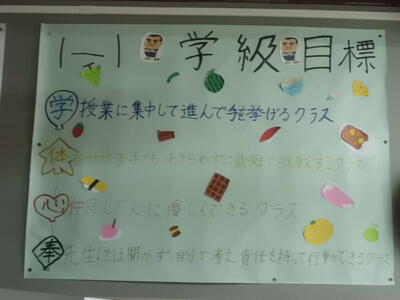 1-1 学級目標
学 授業に集中して進んで手を挙げるクラス
体 自分が苦手でもあきらめずに最後まで挑戦するクラス
心 仲良しで人に優しくできるクラス
奉 先生には聞かず、自分で考え責任を持って行動できるクラス